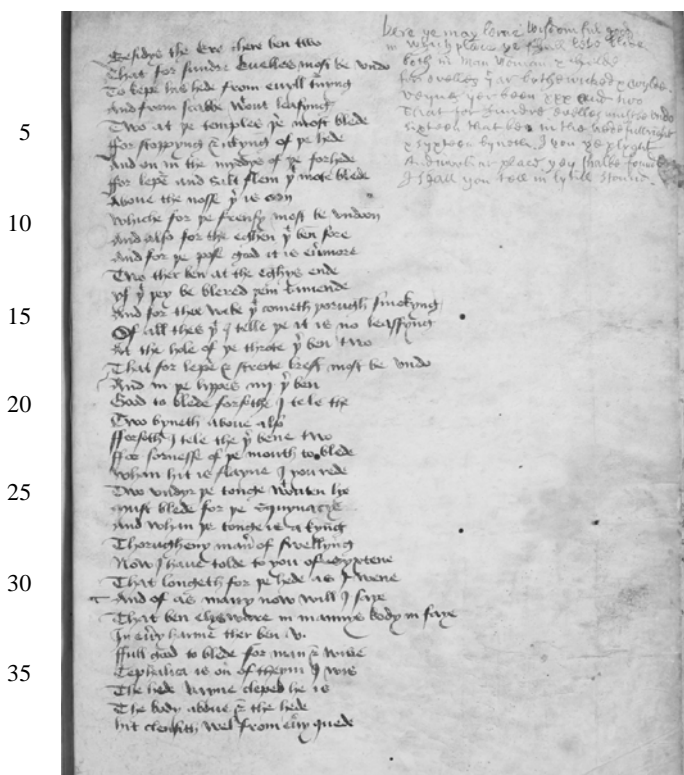 Besidys the Eere there ben two
That for sundre Euelles most be vndo
To kepe his hede from euyll turnyng
And from scabbe wont leasyng
5 Two at þe temples þe most blede
ffor stoppyng & akyng of þe hede
And on in the myddys of þe forhede
ffor lepre and salt flem þt mote blede
Aboue the nose þt is oon
10 Whiche for þe frensy most be vndoon
And also for the eghen þt ben sore
And for þe pose good it is euermore
Two ther ben at the eghys ende
yf þt þey be blered
15 And for thee webe þt cometh þorugh smokyng
Of all thes þt I telle þe it is no leassyng
At the hole of þe throte þt ben two
That for lepre & streite brest most be vndo
And in þe lyppes iiij þt ben
20 Good to blede forsothe I tele the
Two byneth aboue also
fforsoth I tele the þt bene two
ffor sornesse of þe mouth to blede
Whan hit is flayne I you rede
25 Two vndyr þe tonge wouten lye
must blede for þe squynacye
And whan þe tonge is akyng
Thorugheny maner of swellyng
Now I haue tolde to you of sixtene
30 That longeth for þe hede as I wene
And of as many now will I saye
That ben elsware in mannys body in faye
In euery harme ther ben v.
ffull good to blede for man & wiue
35 Cephalica is on of theym I wis
The hede vayne cleped he is
The body aboue & the hede
hit clensith wel from euery quede
here ye may lerne wisdom ful good
in which place ye shall lete blode
both in man woman & childe
for evelles þt ar bothe wicked & wylde
veynes þer been xxx and two
That for sundre evelles must be vndo
sixteen that been in the above full right
& syxteen byneth I you ye plyght
In what place yay shalbe founde
I shall you tell in lytill stound.